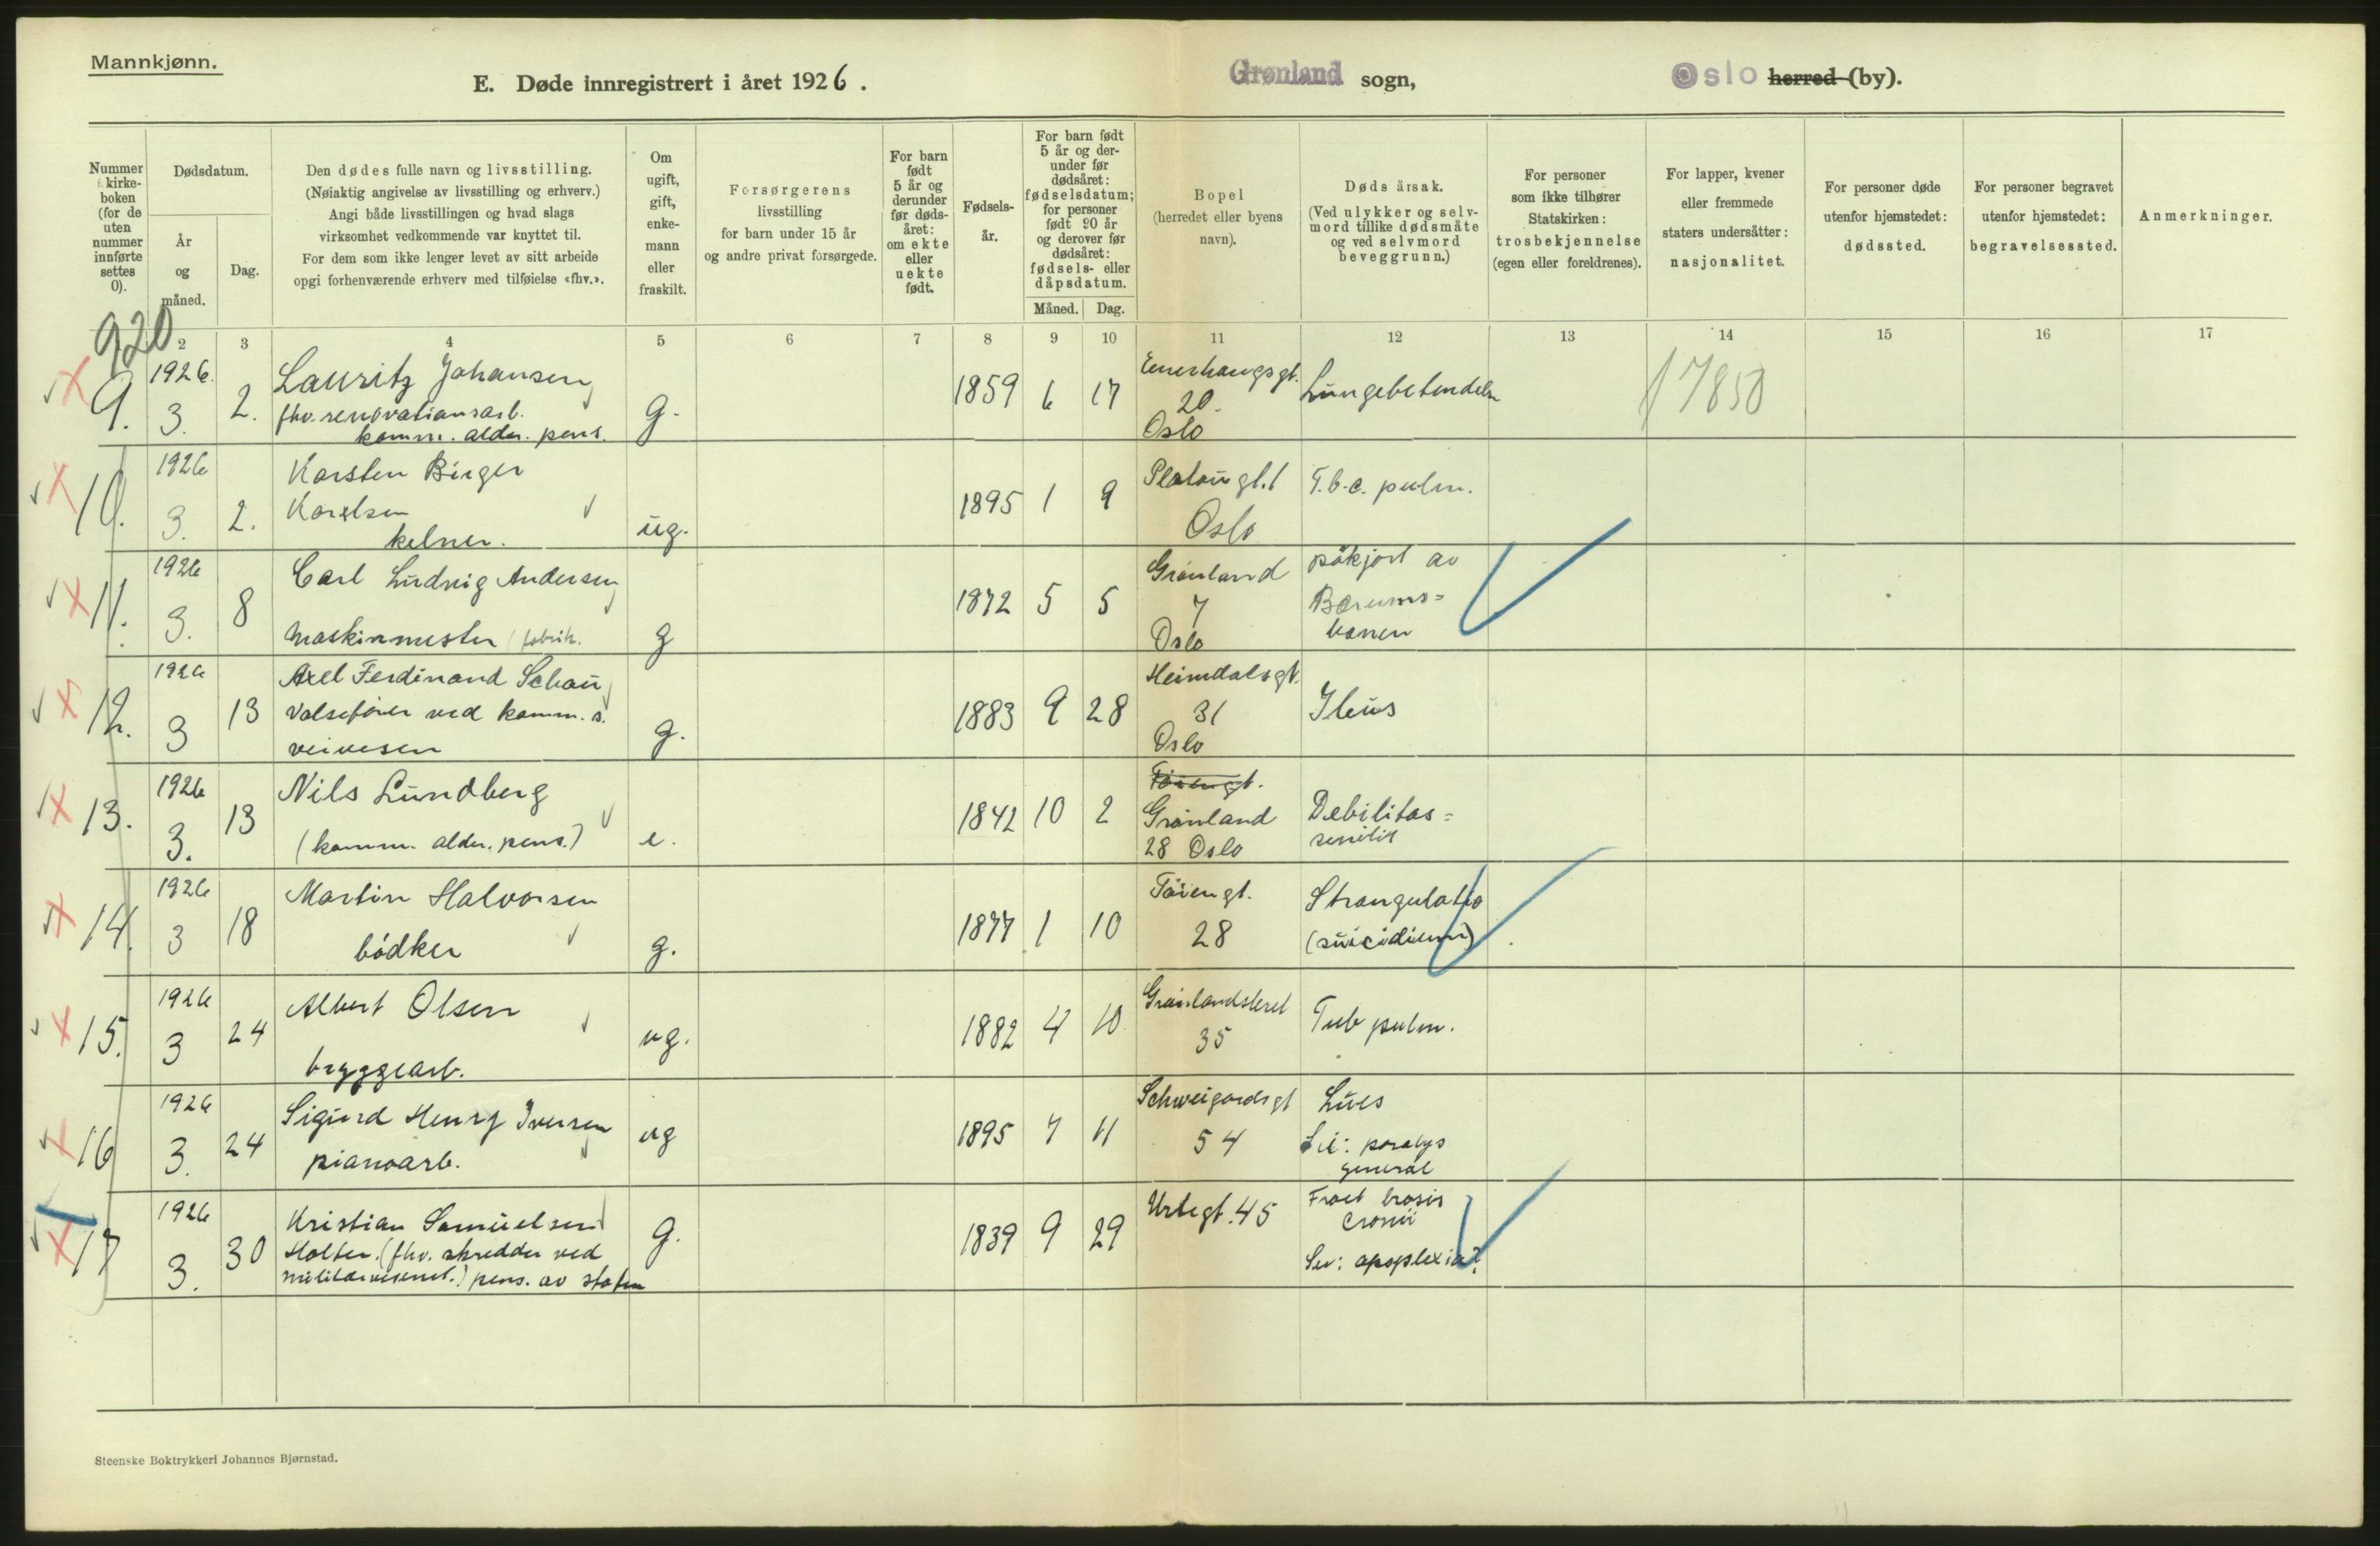 Mannkjønn.
E. Døde innregistrert i året 1926.
Grønland sogn,
Oslo herred (by).
Nummer i kirke-boken (for de uten nummer innførte settes 0).
Dødsdatum.
År og måned.
Dag.
Den dødes fulle navn og livsstilling.
(Nøiaktig angivelse av livsstilling og erhverv.)
Angi både livsstillingen og hvad slags
virksomhet vedkommende var knyttet til.
For dem som ikke lenger levet av sitt arbeide
opgi forhenværende erhverv med tilføielse «fhv.».
Om ugift, gift, enke-mann eller fraskilt.
Forsørgerens
livsstilling
for barn under 15 år
og andre privat forsørgede.
For barn født 5 år og derunder før døds-året: om ekte eller uekte født.
Fødsels-år.
For barn født 5 år og der-under før dødsåret: fødselsdatum; for personer født 90 år og derover før dødsåret: fødsels- eller dåpsdatum.
Måned. Dag.
Bopel
(herredet eller byens
navn).
Dødsårsak.
(Ved ulykker og selv-
mord tillike dødsmåte
og ved selvmord
beveggrunn.)
For personer
som ikke tilhører
Statskirken:
trosbekjennelse
(egen eller foreldrenes).
For lapper, kvener
eller fremmede
staters undersåtter:
nasjonalitet.
For personer døde
utenfor hjemstedet:
dødssted.
For personer begravet
utenfor hjemstedet:
begravelsessted.
Anmerkninger.
920
2 3 4 5 6 7 8 9 10 11 12 13 14 15 16 17
9. 1926. 3. 2. Lauritz Johansen
fhv. renovationsarb.
komm. alder. pens. g. 1859 6 17 Enerhaugsgt.
20.
Oslo
Lungebetendelse
17850
10. 1926 3. 2. Karsten Birger
Karlsen
kelner. ug. 1895 1 9 Platougt. 1
Oslo
T.b.c. pulm.
11. 1926 3. 8 Carl Ludvig Andersen
maskinmester fabrik. g 1872 5 5 Grønland
7
Oslo
påkjørt av
Bærums=
banen
12. 1926 3 13 Axel Ferdinand Schau
Valsefører ved komm. s.
veivesen g. 1883 9 28 Heimdalsgt.
31
Oslo
Ileus
13. 1926 3. 13 Nils Lundberg
(komm. alder. pens.) e. 1842 10 2 Tøiengt.
Grønland
28 Oslo
Debilitas=
senilis
14. 1926 3 18 Martin Halvorsen
bødker g. 1877 1 10 Tøiengt.
28
Strangulatio
(suicidium)
15. 1926 3 24 Albert Olsen
bryggearb. ug. 1882 4 10 Grønlandsleret
35
Tub pulm.
16 1926 3. 24 Sigurd Henry Iversen
pianoarb. ug 1895 7 11 Schweigaardsgt
54
Lues
paralys
general
17 1926 3. 30 Kristian Samuelsen
Holter. (fhv. skredder ved
militærvesenet.) pens. av staten g. 1839 9 29 Urtegt. 45
Fract basis
cranii
Sev: apoplexia?
Steenske Boktrykkeri Johannes Bjørnstad.